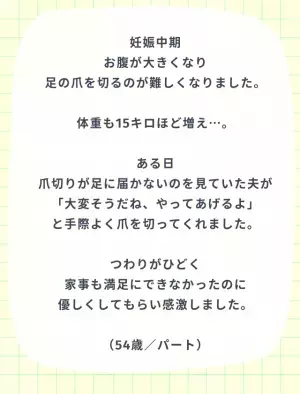 妊娠中期
お腹が大きくなり
足の爪を切るのが難しくなりました。
体重も15キロほど増え…。
ある日
爪切りが足に届かないのを見ていた夫が
「大変そうだね、やってあげるよ」
と手際よく爪を切ってくれました。
つわりがひどく
家事も満足にできなかったのに
優しくしてもらい感激しました。
（54歳／パート）